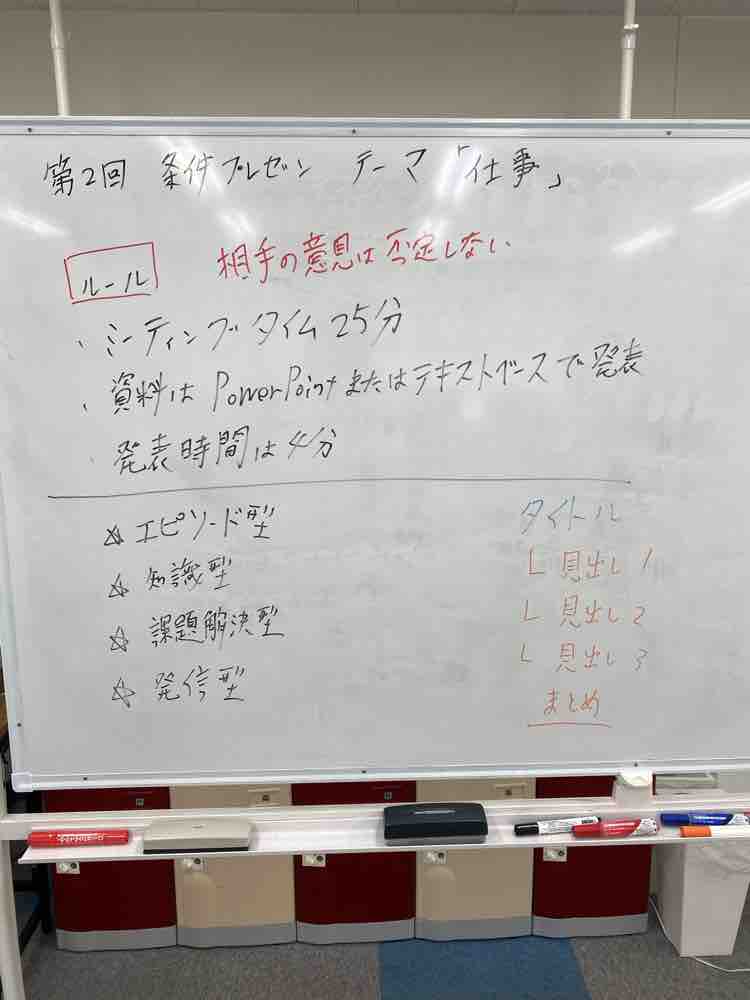 第2回 条件プレゼン テーマ「仕事」
ルール 相手の意見は否定しない
・ミーティングタイム25分
・資料はPowerPointまたはテキストベースで発表
・発表時間は4分
☆エピソード型
☆知識型
☆課題解決型
☆発信型
タイトル
L 見出し1
L 見出し2
L 見出し3
まとめ